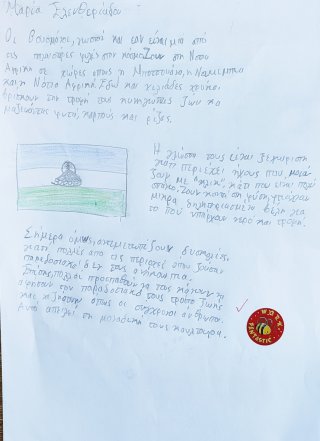 Μαρία Ελευθεριάδου
Οι Βουσμάνοι, γνωστοί και σαν είναι μια από
τις παλιότερες φυλές στον κόσμο. Ζουν στη Νότια
Αφρική σε χώρες όπως η Μποτσουάνα, η Ναμίμπια
και η Νότια Αφρική. Εδώ και χιλιάδες χρόνια,
βρίσκουν την τροφή τους κυνηγώντας ζώα και
μαζεύοντας φυτά, καρπούς και ρίζες.
Η γλώσσα τους είναι ξεχωριστή
γιατί περιέχει ήχους που μοιά
ζουν με "κλικ", κάτι που είναι πολύ
σπάνιο. Ζουν κοντά στη φύση
μικρά δηλητηριασμένα βέλη για
το που υπάρχουν νερό και τροφή.
Σήμερα όμως, αντιμετωπίζουν δυσκολίες,
γιατί πολλές από τις περιοχές όπου ζούσαν
παραδοσιακά δεν τους ανήκουν πια.
Επίσης, πολλοί προσπαθούν να τους κάνουν να
αφήσουν τον παραδοσιακό τους τρόπο ζωής
και να ζήσουν όπως οι σύγχρονοι άνθρωποι.
Αυτό απειλεί τη μοναδική τους κουλτούρα.
WORK